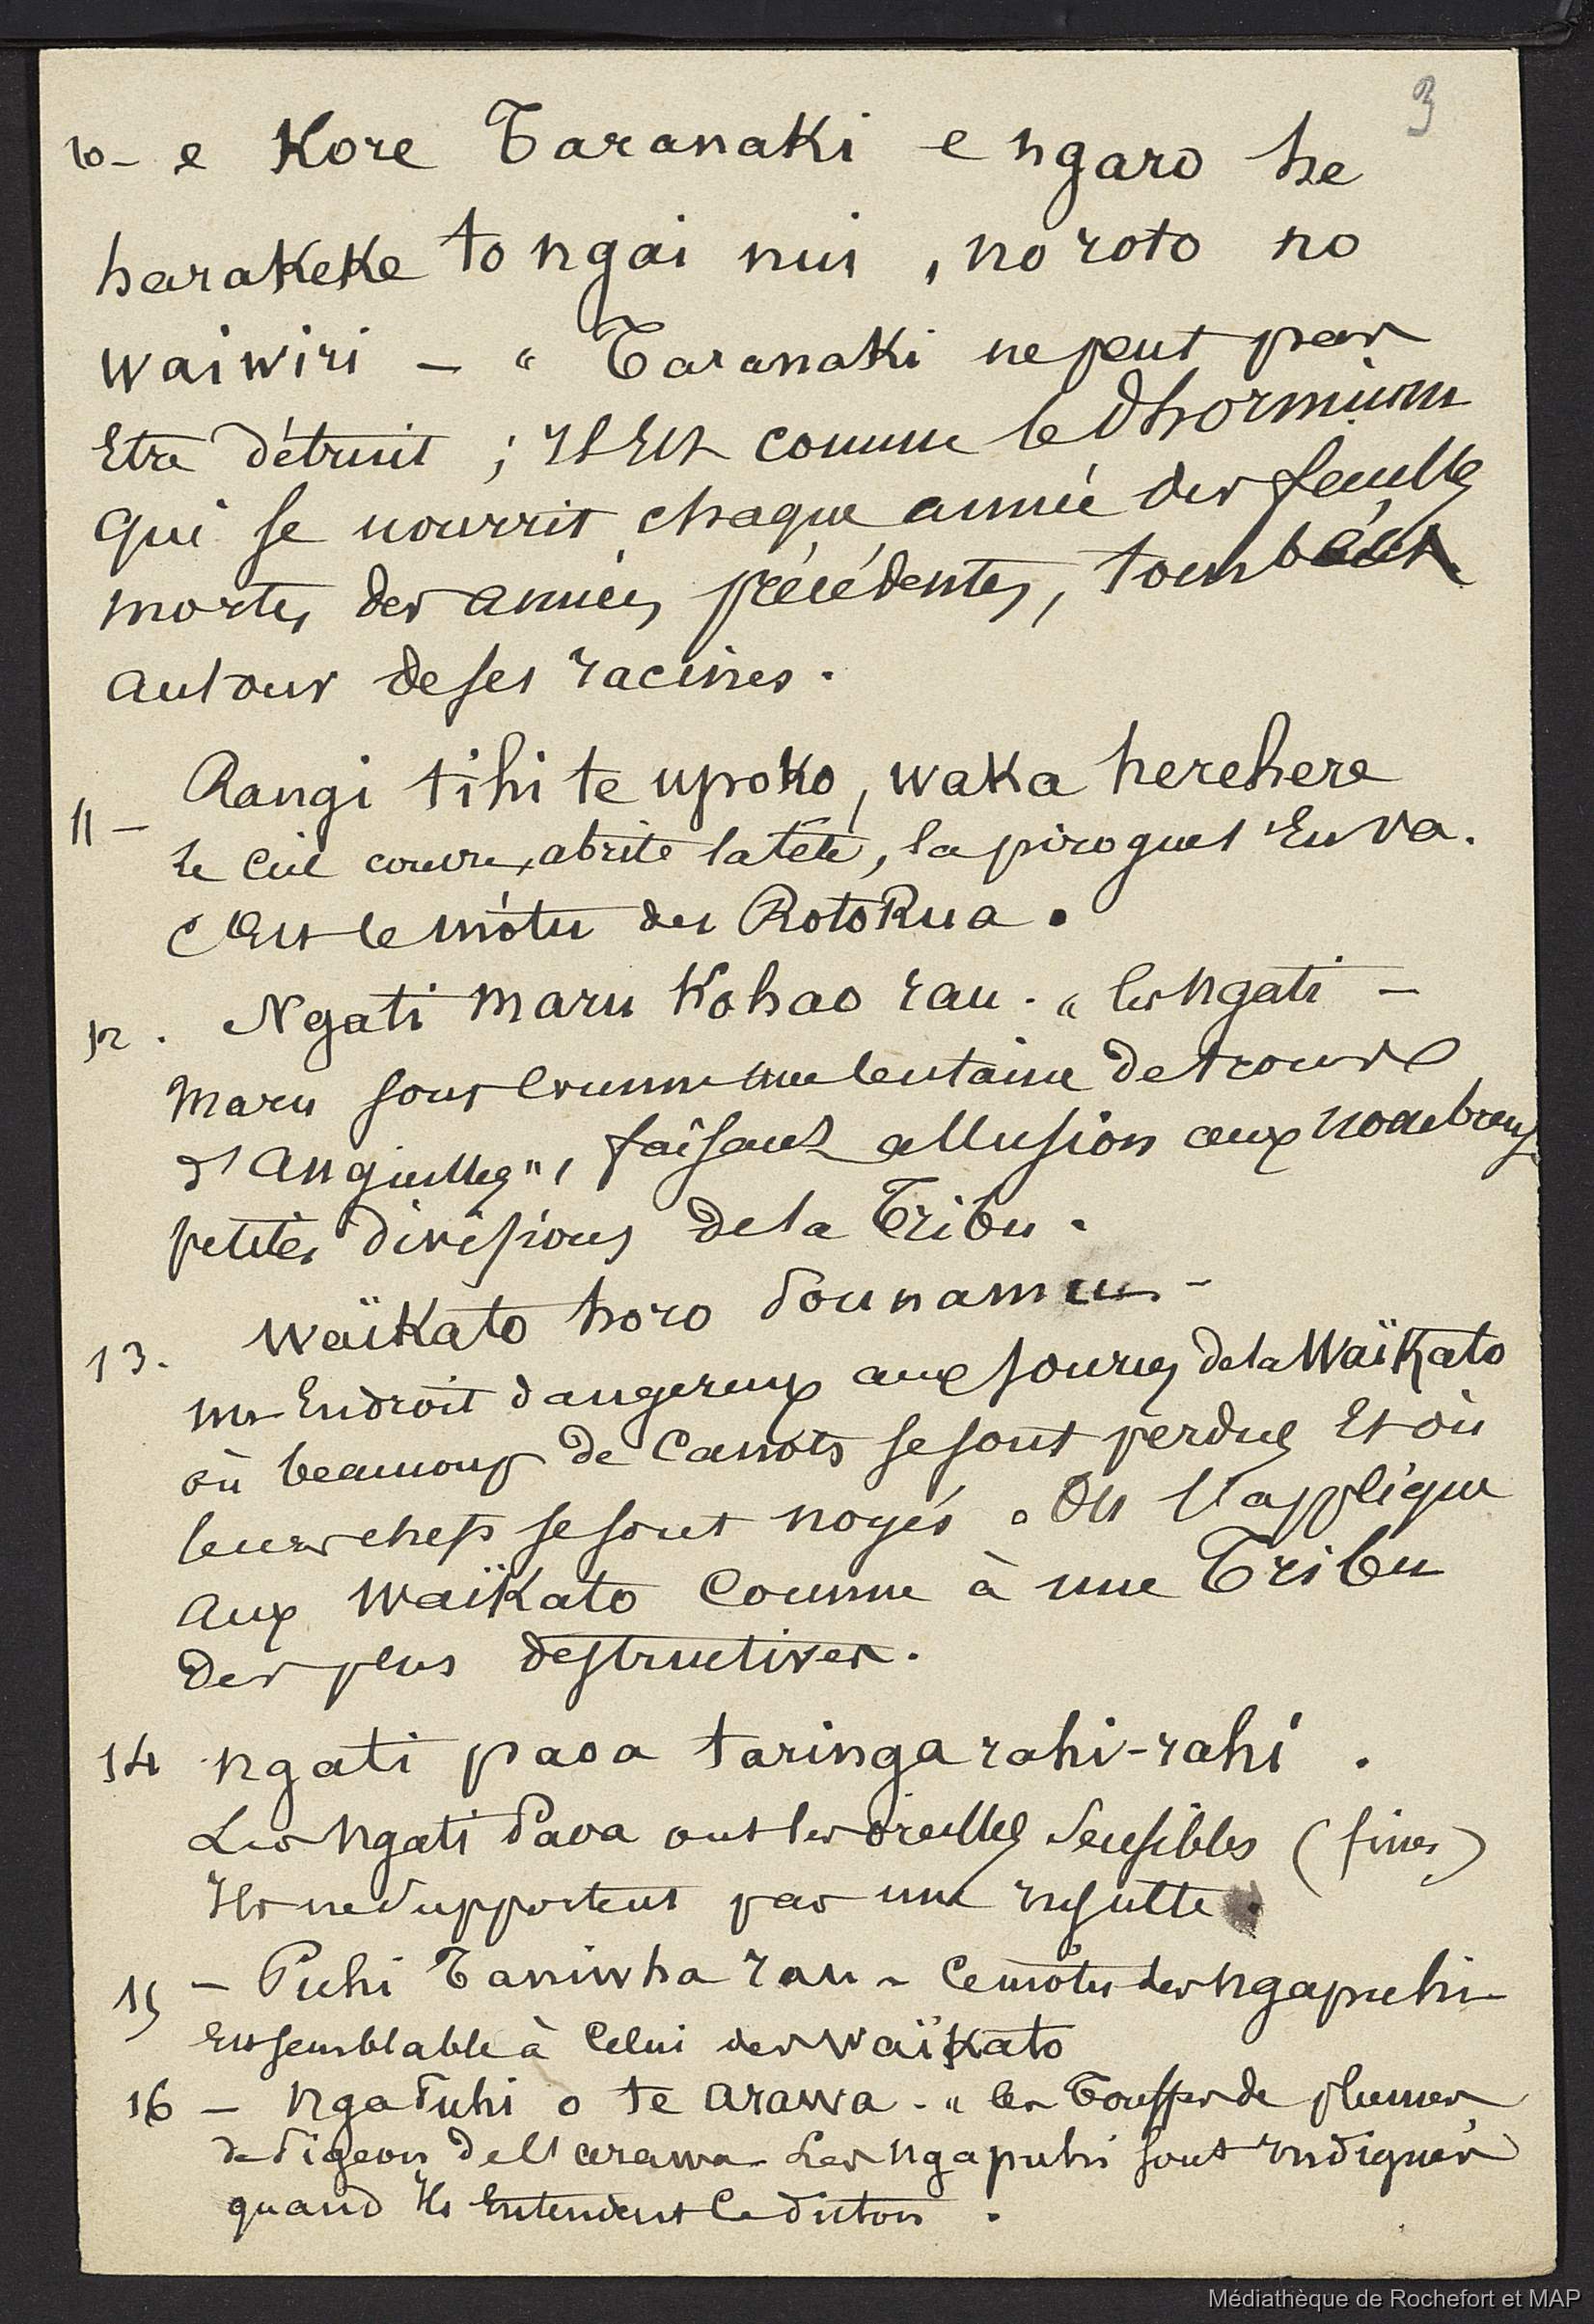 3
10 - e Kore Taranaki e ngaro he
harakeke to ngai nui, no roto no
waiwiri - " Taranaki ne peut pas
Etre détruit ; Il Est comme le Phormium
qui se nourrit chaque année des feuilles
mortes des années précédentes, tombées
autour de ses racines.
11 - Rangi tihi te upoko, waka herehere
Le Ciel couvre, abrite la tête, la pirogue s'En va.
C'Est le môtu des RotoRua.
12. Ngati maru Kohao rau. " les ngati -
maru sont comme une centaine de trous
d'anguilles", faisant allusion aux nombreuses
petites divisions de la Tribu.
13. Waïkato horo Pounamu -
un Endroit dangereux aux sources de la Waïkato
où beaucoup de Canots se sont perdus Et où
leurs chefs se sont noyés. On l'applique
aux Waïkato Comme à une Tribu
des plus destructives.
14 ngati paoa taringa rahi-rahi.
Les Ngati Paoa ont les oreilles Sensibles (fines)
Ils ne Supportent pas une insulte.
15 - Puhi Taniwha rau - Ce môtu des ngapuhi
Est semblable à Celui des Waïkato
16 - nga Puhi o te arawa. " les Touffes de plumes
de Pigeon de l'arawa - Les ngapuhi sont indignés
quand Ils Entendent Ce dicton.
Médiathèque de Rochefort et MAP